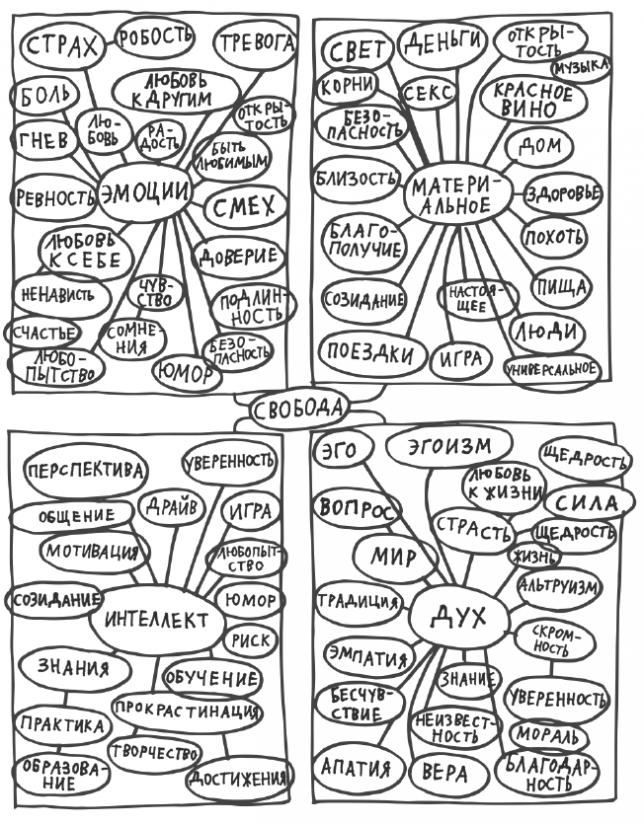 СТРАХ
РОБОСТЬ
ТРЕВОГА
БОЛЬ
ЛЮБОВЬ
К ДРУГИМ
ГНЕВ
ЛЮ-
БОВЬ
РА-
ДОСТЬ
ОТКРЫ-
ТОСТЬ
БЫТЬ
ЛЮБИМЫМ
РЕВНОСТЬ
ЭМОЦИИ
СМЕХ
ЛЮБОВЬ
К СЕБЕ
ДОВЕРИЕ
НЕНАВИСТЬ
ЧУВ-
СТВО
ПОДЛИН-
НОСТЬ
СЧАСТЬЕ
СОМНЕ-
НИЯ
БЕЗО-
ПАСНОСТЬ
ЛЮБО-
ПЫТСТВО
ЮМОР
СВЕТ
ДЕНЬГИ
ОТКРЫ-
ТОСТЬ
МУЗЫКА
КОРНИ
СЕКС
КРАСНОЕ
ВИНО
БЕЗО-
ПАСНОСТЬ
ДОМ
БЛИЗОСТЬ
МАТЕРИ-
АЛЬНОЕ
ЗДОРОВЬЕ
БЛАГО-
ПОЛУЧИЕ
ПОХОТЬ
СОЗИДАНИЕ
НАСТОЯ-
ЩЕЕ
ПИЩА
ЛЮДИ
ПОЕЗДКИ
ИГРА
УНИВЕРСАЛЬНОЕ
СВОБОДА
ПЕРСПЕКТИВА
УВЕРЕННОСТЬ
ОБЩЕНИЕ
ДРАЙВ
ИГРА
МОТИВАЦИЯ
ЛЮБОПЫТ-
СТВО
СОЗИДАНИЕ
ИНТЕЛЛЕКТ
ЮМОР
РИСК
ЗНАНИЯ
ОБУЧЕНИЕ
ПРАКТИКА
ПРОКРАСТИНАЦИЯ
ТВОРЧЕСТВО
ОБРАЗОВА-
НИЕ
ДОСТИЖЕНИЯ
ЭГО
ЭГОИЗМ
ЩЕДРОСТЬ
ЛЮБОВЬ
К ЖИЗНИ
ВОПРОС
СИЛА
СТРАСТЬ
ЩЕДРОСТЬ
МИР
ЖИЗНЬ
ТРАДИЦИЯ
ДУХ
АЛЬТРУИЗМ
ЭМПАТИЯ
СКРОМ-
НОСТЬ
ЗНАНИЕ
БЕСЧУВ-
СТВИЕ
УВЕРЕННОСТЬ
НЕИЗВЕСТ-
НОСТЬ
МОРАЛЬ
АПАТИЯ
ВЕРА
БЛАГОДАР-
НОСТЬ